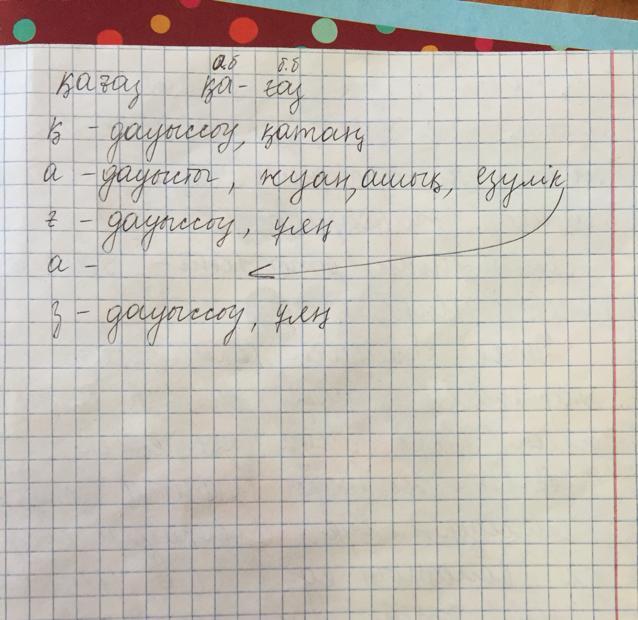 а.б б.б
қағаз қа- ғаз
қ - дауыссыз, қатаң
а - дауысты, жуан, ашық, езулік
ғ - дауыссыз, ұяң
а -
з - дауыссыз, ұяң